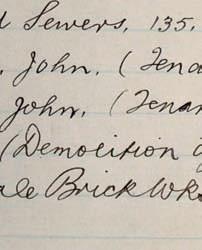 d Sewers, 135.
, John. (Tena
John, (Tenan
(Demolition o
ale Brick Wks